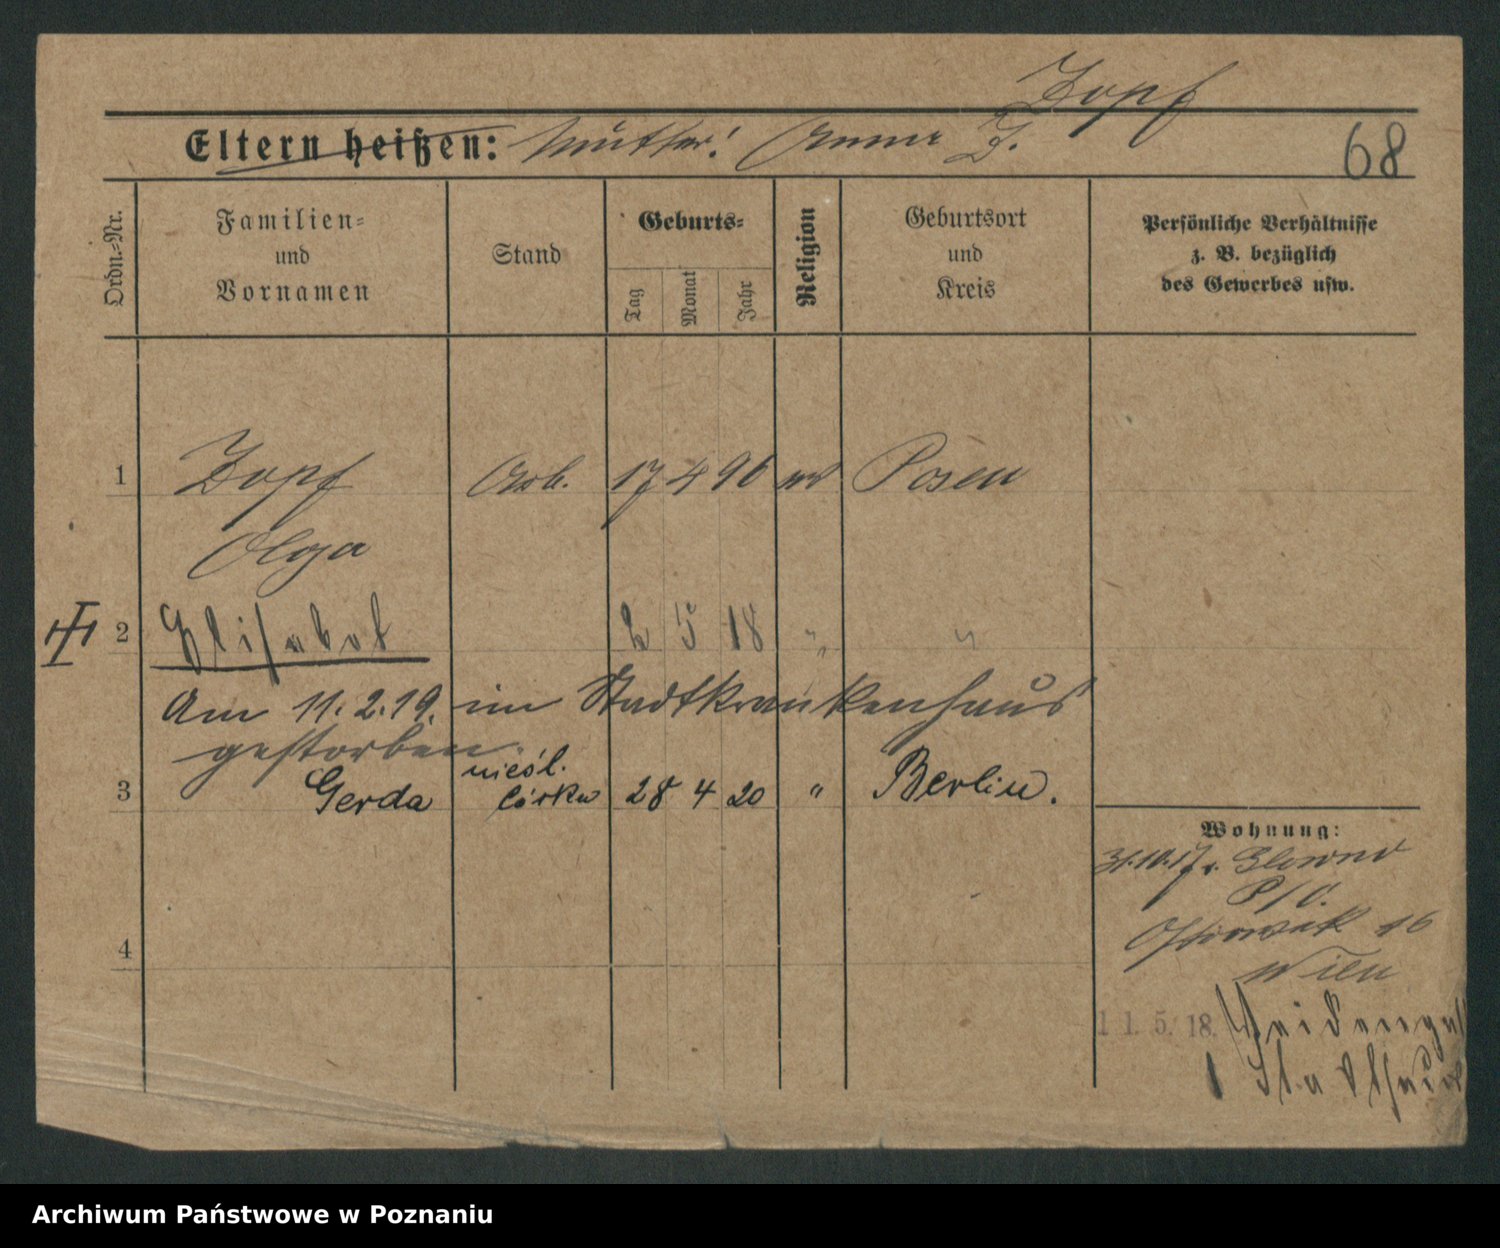 Zopf
Eltern heißen: Mutter: Anna Z.
68
Ordn.-Nr.
Familien-
und
Vornamen
Stand
Geburts-
Tag
Monat
Jahr
Religion
Geburtsort
und
Kreis
Persönliche Verhältnisse
z. B. bezüglich
des Gewerbes usw.
1 Zopf Arb. 17 4 96 Posen
Olga
2 Elisabet 2 5 18 " "
Am 11.2.19. im Stadtkrankenhaus
gestorben.
nieśl.
3 Gerda córka 28 4 20 " Berlin.
Wohnung:
31.10.17 v. Glowno
P/O.
16
Wien
11.5.18.
4
Archiwum Państwowe w Poznaniu